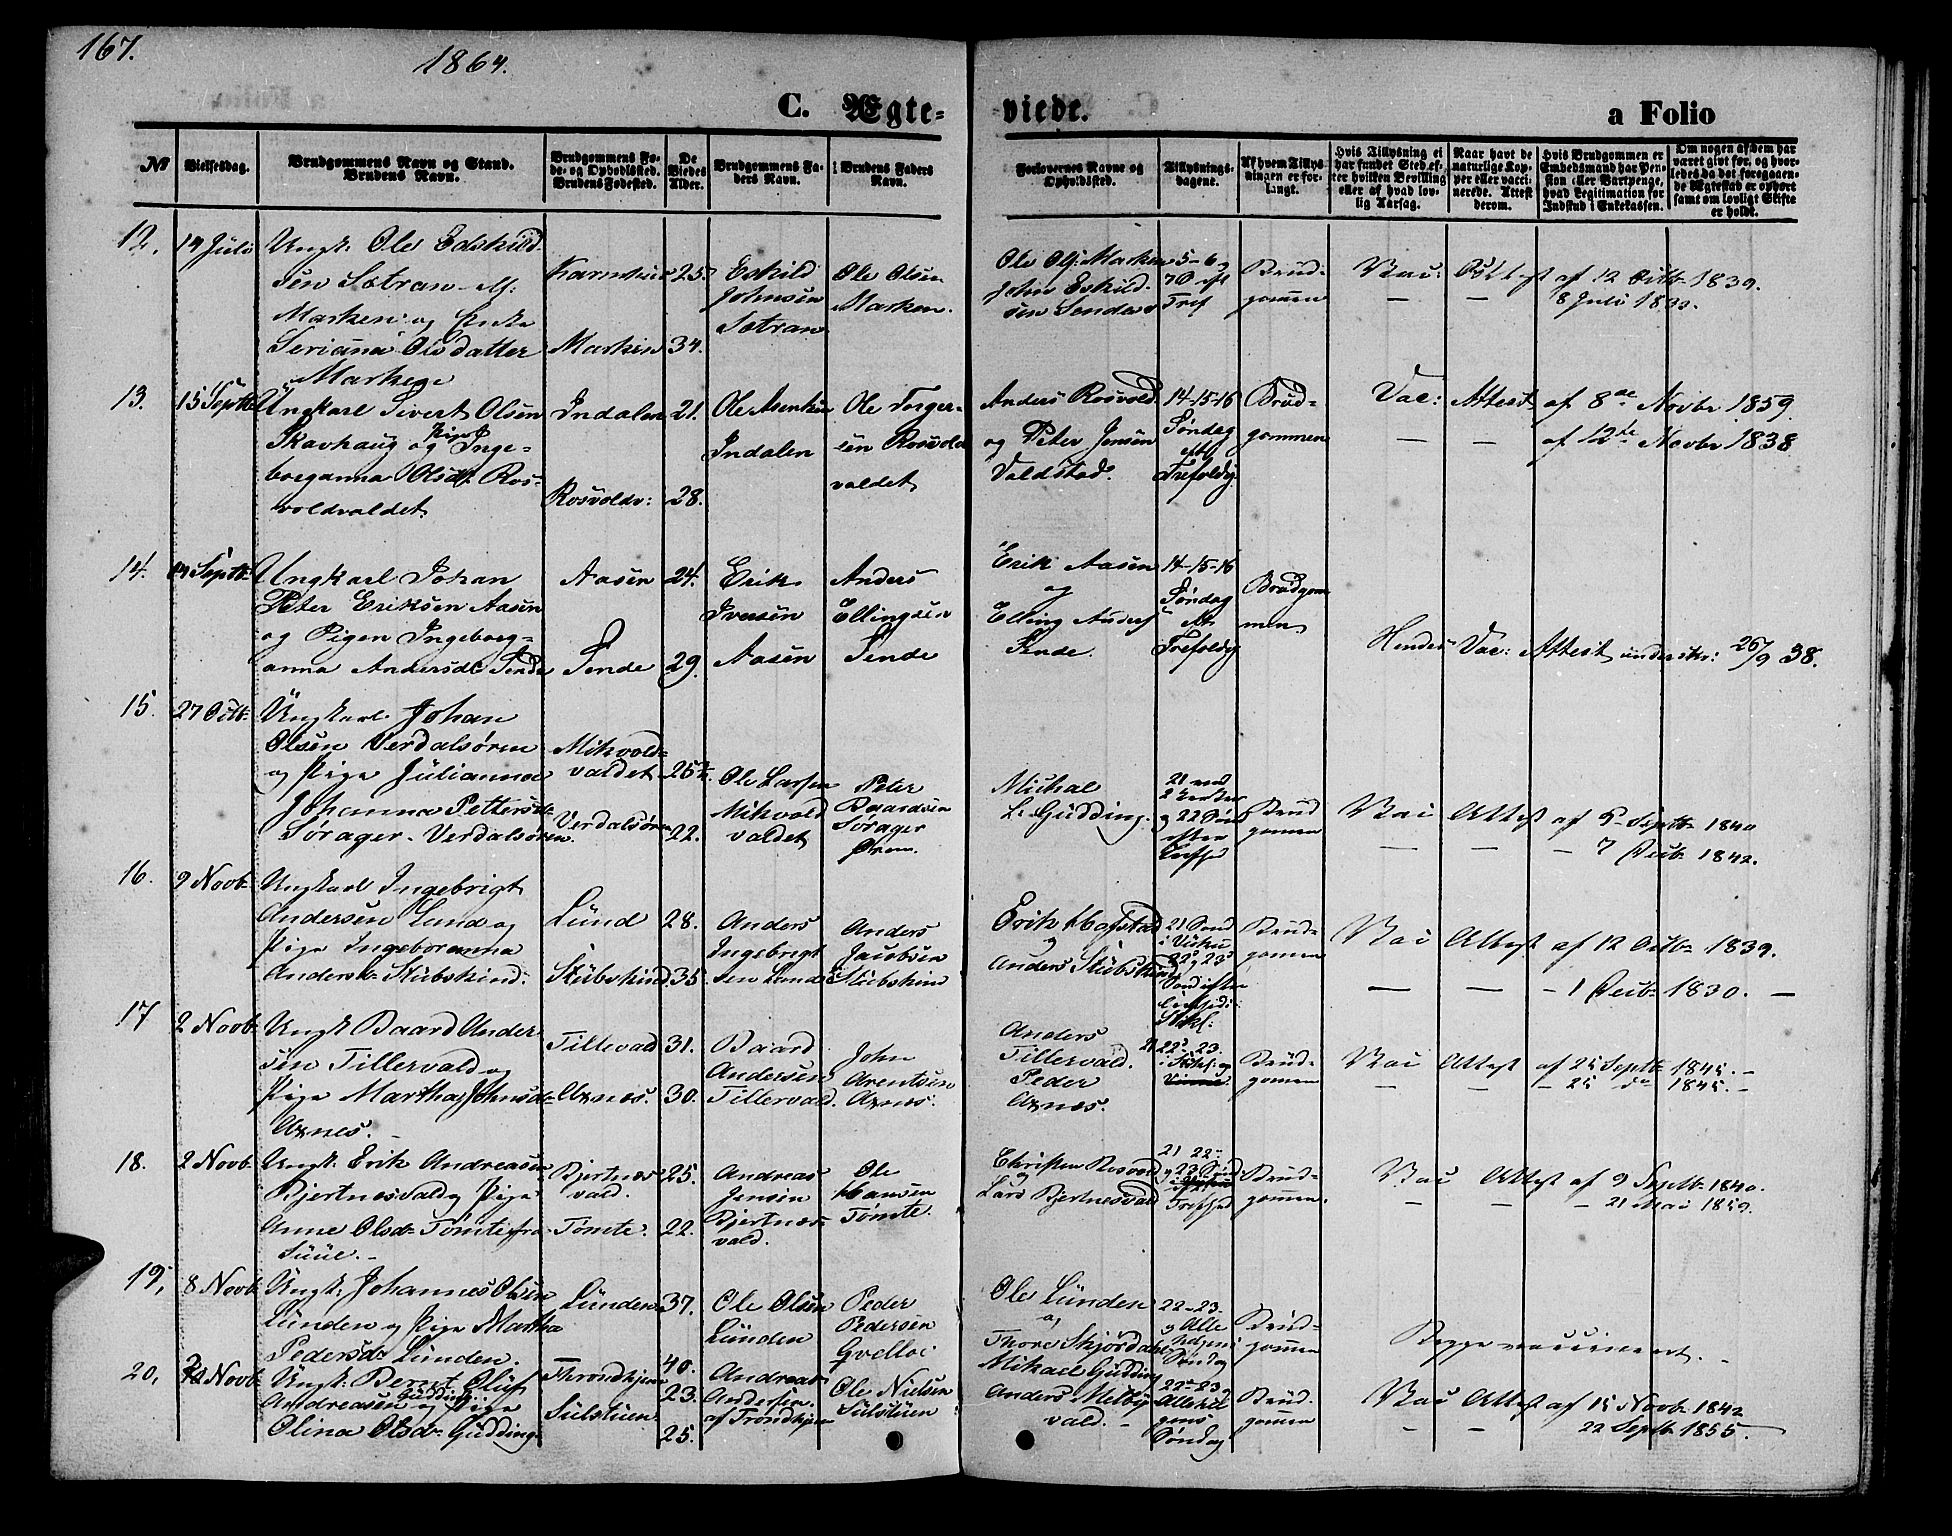 167.
1864.
C. Ægte-
viede.
a Folio
No
Vielsesdag.
Brudgommens Navn og Stand.
Brudens Navn.
Brudgommens Fø-
de- og Opholdssted.
Brudens Fødested.
De
Viedes
Alder.
Brudgommens Fa-
ders Navn.
Brudens Faders
Navn.
Forlovernes Navne og
Opholdssted.
Tillysnings-
dagene.
Af hvem Tillys-
ningen er for-
langt.
Hvis Tillysning ei
har fundet Sted, ef-
ter hvilken Bevilling
eller af hvad lov-
lig Aarsag.
Naar havt de
naturlige Kop-
per eller vacci-
nerede. Attest
derom.
Hvis Brudgommen er
Embedsmand har Pen-
sion eller Vartpenge,
hvad Legitimation for
Indskud i Enkekassen.
Om nogen af dem har
været givt før, og hvor-
ledes da det foregaaen-
de Ægteskab er ophørt
samt om lovligt Skifte
er holdt.
12.
14 Juli
Ungk: Ole Edskild-
sen Sotran
Marken og Enke
Serianna Olsdatter
Marken
Marken
25.
34.
Eskild
Johnsen
Sotran
Ole Olsen
Marken.
Ole Ols: Marken
John Eskild-
sen
5-6 og
Tref
Brud-
gommen
Vac: Attest af 12 Octb 1839.
— — 8 Juli
13.
15 Septb
Ungkarl Sivert Olsen
Skavhaug og Pige Inge-
borganna Olsdt. Ros-
voldvaldet
Indalen
Rosvoldv:
21.
28.
Ole
Indalen
Ole Torger-
sen Rosvold
valdet
Anders Rosvold
og Peter Jensen
Valdstad.
14-15-16
Søndag
eft
Trefoldig
Brud-
gommen
Vac: Attest af 8de Novbr 1859.
— — af 12te Novbr 1838
14.
Septb
Ungkarl Johan
Peter Eriksen Aasen
og Pigen Ingeborg-
anna Andersdt. Sende
Aasen
Sende
24.
29.
Erik
Iversen
Aasen
Anders
Ellingsen
Sende
Erik Aasen
og
Elling Anders
Sende.
14-15-16
Søndag
eft
Trefoldig
Brudgom
men
Hendes Vac: Attest underskr: 26/9 38.
15.
27 Octb
Ungkarl Johan
Olsen Verdalsøren
og Pige Julianna
Johanna Pettersd
Sørager. Verdalsøren.
Mikvold-
valdet
Verdalsøren
25½
22.
Ole Larsen
Mikvold
valdet
Peter
Baardsen
Sørager
Øren.
Michal
L. Gudding.
21 ved
og 22 Sønd
efter
Trefhed
Brud
gommen
Vac Attest af Septb 1840
— — — 7 Decb 1842.
16.
9 Novb
Ungkarl Ingebrigt
Andersen Lund og
Pige Ingeboranna
Andersdr Stubskind:
Lund
Stubskind
28.
35.
Anders
Ingebrigt
sen Lund
Anders
Jacobsen
Stubskind
Erik Hofstad
og
Anders Stubskind
21 Sønd
i Vuku
22 og 23
Sønd efter
Trefhed:
Stikl:
Brud-
gommen
Vac Attest af 12 Octb 1839.
— — — 1 Decb 1830. —
17
2 Novb
Ungk Baard Ander-
sen Tillervald og
Pige Martha Johnsdr
Axnes.
Tillevald
Axnes.
31.
30.
Baard
Andersen
Tillervald.
John
Arentsen
Axnes.
Anders
Tillervald.
Peder
Axnes.
21 22 23.
i Stikl: og
Brud-
gommen
Vac Attest af 25 Septb 1845.
— — — 25 do 1845.
18.
2 Novb
Ungk. Erik Andreasen
Bjertnesvald og Pige
Anne Olsdr Tømte fra
Suul.
Bjertnes-
vald.
Tømte.
25.
22.
Andreas
Jensen
Bjertnes-
vald.
Ole
Hansen
Tømte.
Christen Rosvold
og
Lars Bjertnesvald
21 22
og 23 Sønd
Trefhed
Brud-
gommen.
Vac Attest af 9 Septb 1840.
— — 21 Mai 1859.
19.
8 Novb
Ungk: Johannes Olsen
Lunden og Pige Martha
Pedersdr Lunden.
Lunden
—
37.
40.
Ole Olsen
Lunden
Peder
Pedersen
Ole Lunden
og
Thore Skjørdal
22-23.
og Alle
helgens
Søndag
Brud-
gommen
Begge vaccineert.
20.
Novb
Ungk: Bernt Oluf
Andreasen Gudding og Pige
Olina Olsdr Gudding.
Throndhjem
Sulstuen
23.
25.
Andreas
Andersen
af Trondhjem
Ole Nielsen
Sulstuen
Mikael Gudding
Anders Melby-
vald.
22 23
Allehel
gens
Søndag
Brud-
gommen
Vac Attest af 15 Novb 1842
— — 22 Septb 1855.